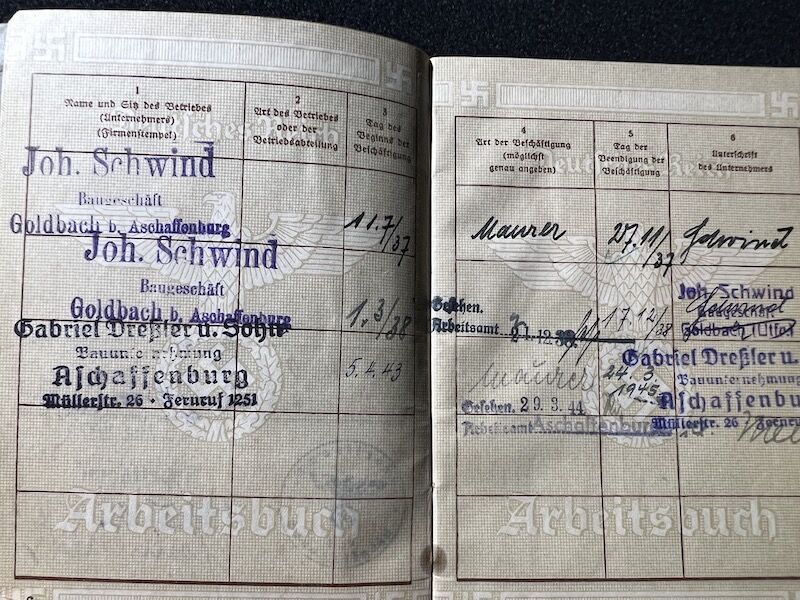 1
Name und Sitz des Betriebes
(Unternehmers)
(Firmenstempel)
2
Art des Betriebes
oder der
Betriebsabteilung
3
Tag des
Beginns der
Beschäftigung
Joh. Schwind
Baugeschäft
Goldbach b. Aschaffenburg
11.7/37
Joh. Schwind
Baugeschäft
Goldbach b. Aschaffenburg
1.3/38
Gabriel Dreßler u. Sohn
Bauunternehmung
Aschaffenburg
Müllerstr. 26 · Fernruf 1251
5.4.43
Arbeitsbuch
4
Art der Beschäftigung
(möglichst
genau angeben)
5
Tag der
Beendigung der
Beschäftigung
6
Unterschrift
des Unternehmers
Maurer
27.11/37
Schwind
Gesehen.
Arbeitsamt
17.12/38
Joh. Schwind
Baugeschäft
Goldbach
Maurer
24.3.
1945
Gabriel Dreßler u.
Bauunternehmung
Aschaffenbu
Müllerstr. 26
Gesehen. 29.3.44
Arbeitsamt Aschaffenburg
Arbeitsbuch